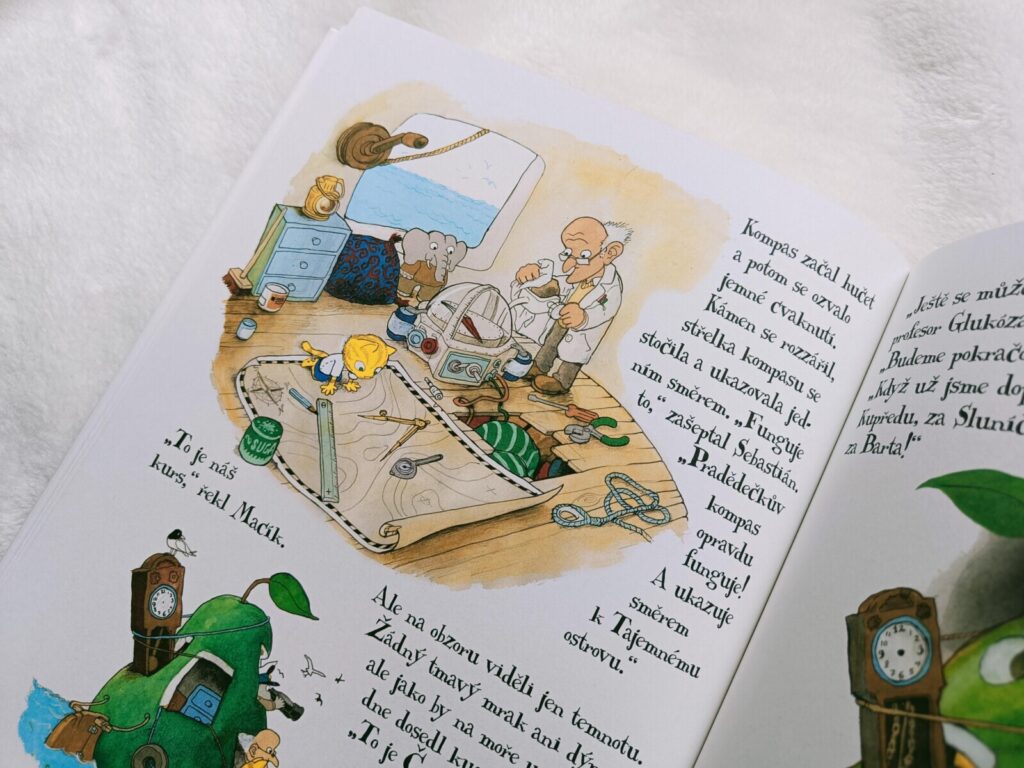 Kompas začal hučet
a potom se ozvalo
jemné cvaknutí.
Kámen se rozzářil,
střelka kompasu se
stočila a ukazovala jed-
ním směrem. „Funguje
to,“ zašeptal Sebastián.
„Pradědečkův
kompas
opravdu
funguje!
A ukazuje
směrem
k Tajemnému
ostrovu.“
„To je náš
kurs,“ řekl Macík.
SUGAR
Ale na obzoru viděli jen temnotu.
Žádný tmavý mrak ani dým,
ale jako by na moře u
dne dosedl
„To je
„Ještě se můž
profesor Glukóza
„Budeme pokrač
„Když už jsme do
Kupředu, za Slunc
za Barta!“